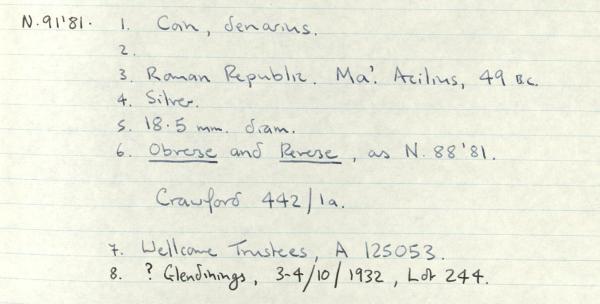 N.91'81. 1. Coin, denarius.
2.
3. Roman Republic. Ma'. Acilius, 49 BC.
4. Silver.
5. 18.5 mm. diam.
6. Obverse and Reverse, as N. 88'81.
Crawford 442/1a.
7. Wellcome Trustees, A 125053.
8. ? Glendinings, 3-4/10/1932, Lot 244.